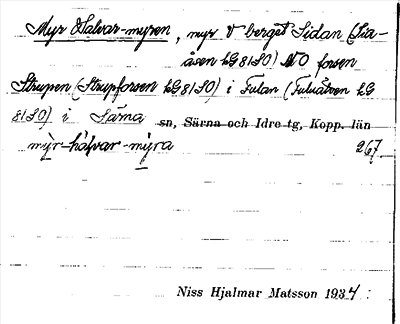 Myr Halvar-myren, myr V berget Sidan (Sid-
åsen kG 81 SO) NO forsen
Strupen (Strupforsen kG 81 SO) i Fulan (Fuluälven kG
81 SO) i Särna sn, Särna och Idre tg, Kopp. län
mỳr-hàlvar-mỳra 267
Niss Hjalmar Matsson 1934